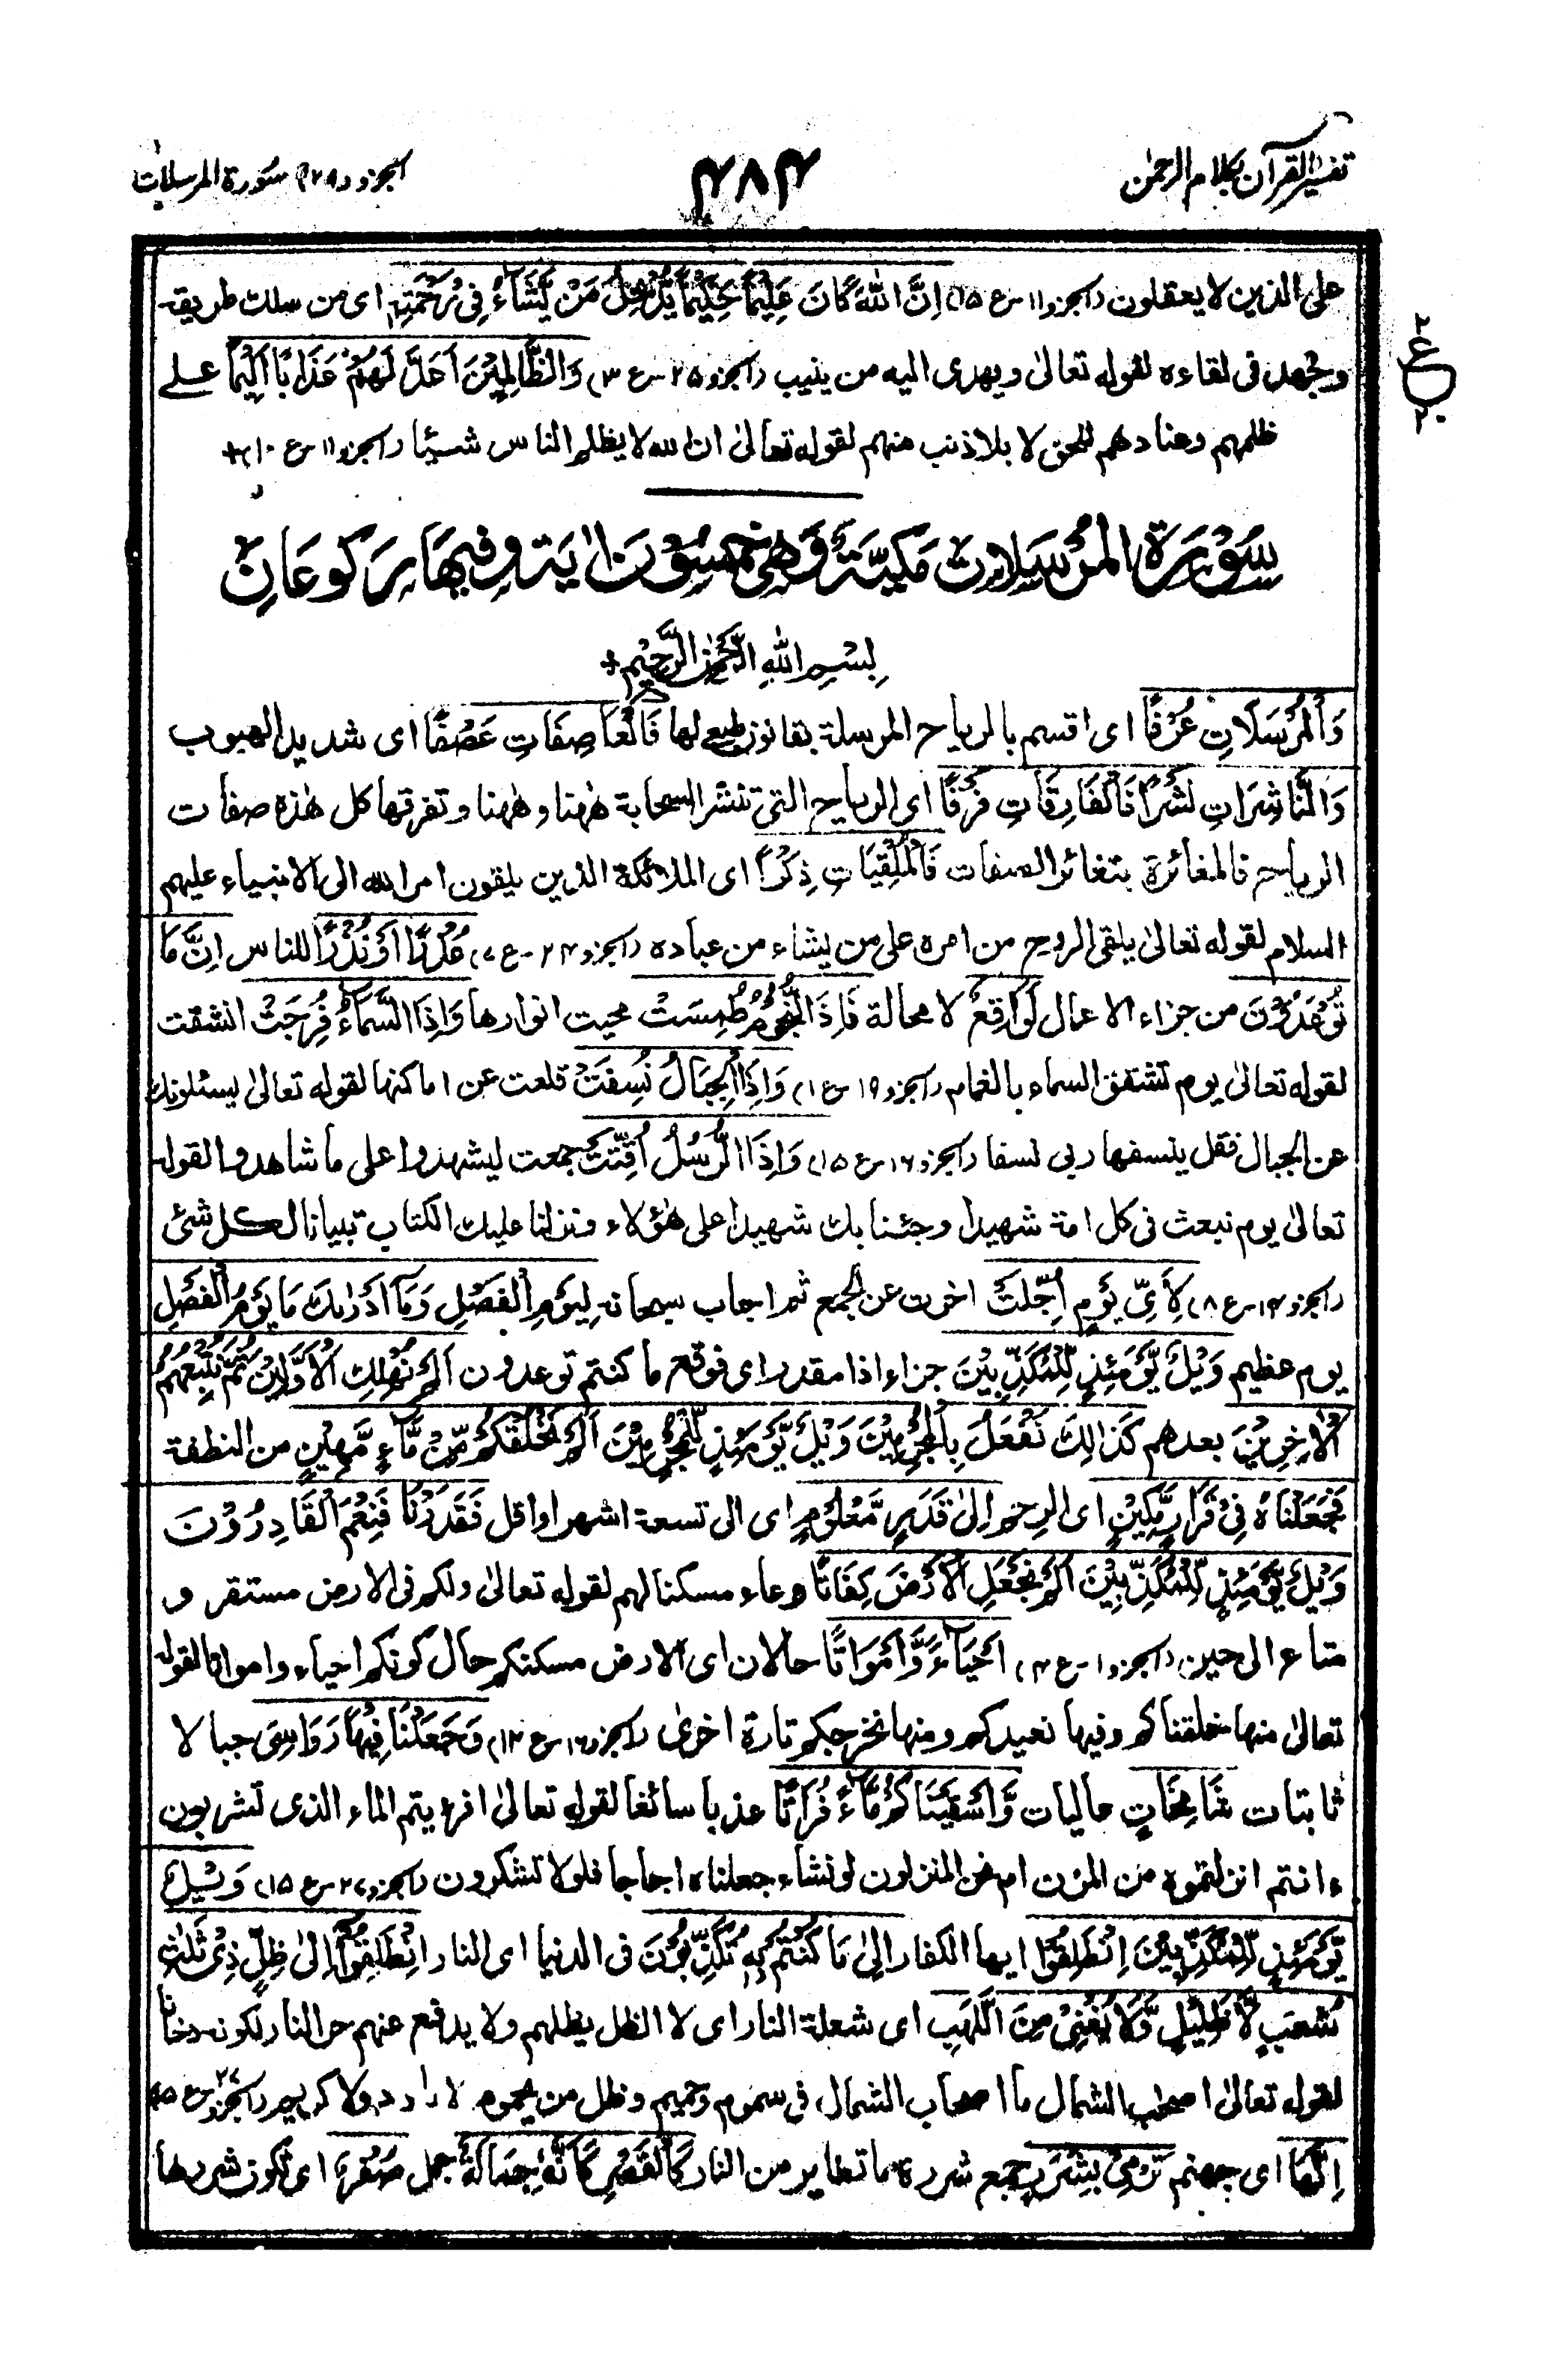 تفسير القرآن بكلام الرحمٰن
۴۸۴
الجزو (۲۹) سورة المرسلات
على الذين لا يعقلون (الجزو ۱۱ -ع ۱۵) اِنَّ اللهَ كَانَ عَلِيْمًا حَكِيْمًا يُّدْخِلُ مَنْ يَّشَآءُ فِىْ رَحْمَتِهٖ اى من سلك طريقه
ويجهد فى لقاءه لقوله تعالىٰ ويهدى اليه من ينيب (الجزو ۲۵ -ع ۳) وَالظَّالِمِيْنَ اَعَدَّ لَهُمْ عَذَابًا اَلِيْمًا على
ظلمهم وعنادهم للحق لا بلا ذنب منهم لقوله تعالىٰ ان الله لا يظلم الناس شيئا (الجزو ۱۱ -ع ۱۰)+
سُوْرَةُ الْمُرْسَلَاتِ مَكِّيَّةٌ وَّهِىَ خَمْسُوْنَ اٰيَةً وفِيْهَا رَكُوْعَانِ
بِسْمِ اللهِ الرَّحْمٰنِ الرَّحِيْمِ+
وَالْمُرْسَلَاتِ عُرْفًا اى اقسم بالرياح المرسلة بقانون طبعى لها فَالْعَاصِفَاتِ عَصْفًا اى شديد الهبوب
وَالنَّاشِرَاتِ نَشْرًا فَالْفَارِقَاتِ فَرْقًا اى الرياح التى تنشر السحابة هٰهنا وهٰهنا وتفرقها كل هٰذه صفات
الرياح فالمغائرة بتغائر الصفات فَالْمُلْقِيَاتِ ذِكْرًا اى الملائكة الذين يلقون امر الله الى الانبياء عليهم
السلام لقوله تعالىٰ يلقى الروح من امره على من يشاء من عباده (الجزو ۲۴ -ع ۷) عُذْرًا اَوْ نُذْرًا للناس اِنَّ مَا
تُوْعَدُوْنَ من جزاء الاعمال لَوَاقِعٌ لا محالة فَاِذَا النُّجُوْمُ طُمِسَتْ محيت انوارها وَاِذَا السَّمَآءُ فُرِجَتْ انشقت
لقوله تعالىٰ يوم تشقق السماء بالغمام (الجزو ۱۹ -ع ۱) وَاِذَا الْجِبَالُ نُسِفَتْ قلعت عن اماكنها لقوله تعالىٰ يسئلونك
عن الجبال فقل ينسفها ربى نسفا (الجزو ۱۶ -ع ۱۵) وَاِذَا الرُّسُلُ اُقِّتَتْ جمعت ليشهدوا على ما شاهدوا لقوله
تعالىٰ يوم نبعث فى كل امة شهيدا وجئنا بك شهيدا على هٰؤلاء ونزلنا عليك الكتاب تبيانا لكل شئ
(الجزو ۱۴ -ع ۱۸) لِاَىِّ يَوْمٍ اُجِّلَتْ اخرت عن الجمع ثم اجاب سبحانه لِيَوْمِ الْفَصْلِ وَمَآ اَدْرٰىكَ مَا يَوْمُ الْفَصْلِ
يوم عظيم وَيْلٌ يَّوْمَئِذٍ لِّلْمُكَذِّبِيْنَ جزاء اذا مقدر اى فوقع ما كنتم توعدون اَلَمْ نُهْلِكِ الْاَوَّلِيْنَ ثُمَّ نُتْبِعُهُمُ
الْاٰخِرِيْنَ بعدهم كَذٰلِكَ نَفْعَلُ بِالْمُجْرِمِيْنَ وَيْلٌ يَّوْمَئِذٍ لِّلْمُجْرِمِيْنَ اَلَمْ نَخْلُقْكُمْ مِّنْ مَّآءٍ مَّهِيْنٍ من النطفة
فَجَعَلْنَاهُ فِىْ قَرَارٍ مَّكِيْنٍ اى الرحم اِلىٰ قَدَرٍ مَّعْلُوْمٍ اى الى تسعة اشهر او اقل فَقَدَرْنَا فَنِعْمَ الْقَادِرُوْنَ
وَيْلٌ يَّوْمَئِذٍ لِّلْمُكَذِّبِيْنَ اَلَمْ نَجْعَلِ الْاَرْضَ كِفَاتًا وعاء مسكنا لهم لقوله تعالىٰ ولكم فى الارض مستقر و
متاع الى حين (الجزو ۱ -ع ۴) اَحْيَآءً وَّاَمْوَاتًا حالان اى الارض مسكنكم حال كونكم احياء وامواتا لقوله
تعالىٰ منها خلقناكم وفيها نعيدكم ومنها نخرجكم تارة اخرىٰ (الجزو ۱۶ -ع ۱۲) وَجَعَلْنَا فِيْهَا رَوَاسِىَ جبالا
ثابتات شَامِخَاتٍ عاليات وَّاَسْقَيْنَاكُمْ مَّآءً فُرَاتًا عذبا سائغا لقوله تعالىٰ افرءيتم الماء الذى تشربون
ءانتم انزلتموه من المزن ام نحن المنزلون لو نشاء جعلناه اجاجا فلولا تشكرون (الجزو ۲۷ -ع ۱۵) وَيْلٌ
يَّوْمَئِذٍ لِّلْمُكَذِّبِيْنَ اِنْطَلِقُوْٓا ايها الكفار اِلىٰ مَا كُنْتُمْ بِهٖ تُكَذِّبُوْنَ فى الدنيا اى النار اِنْطَلِقُوْٓا اِلىٰ ظِلٍّ ذِىْ ثَلٰثِ
شُعَبٍ لَّا ظَلِيْلٍ وَّلَا يُغْنِىْ مِنَ اللَّهَبِ اى شعلة النار اى لا الظل يظلهم ولا يدفع عنهم حر النار لكونه دخانا
لقوله تعالىٰ اصحٰب الشمال ما اصحاب الشمال فى سموم وحميم وظل من يحموم لا بارد ولا كريم (الجزو ۲۷ -ع ۱۵)
اِنَّهَا اى جهنم تَرْمِىْ بِشَرَرٍ جمع شررة ما تطاير من النار كَالْقَصْرِ كَاَنَّهٗ جِمَالَةٌ جمل صُفْرٌ اى تكون شررها
ع